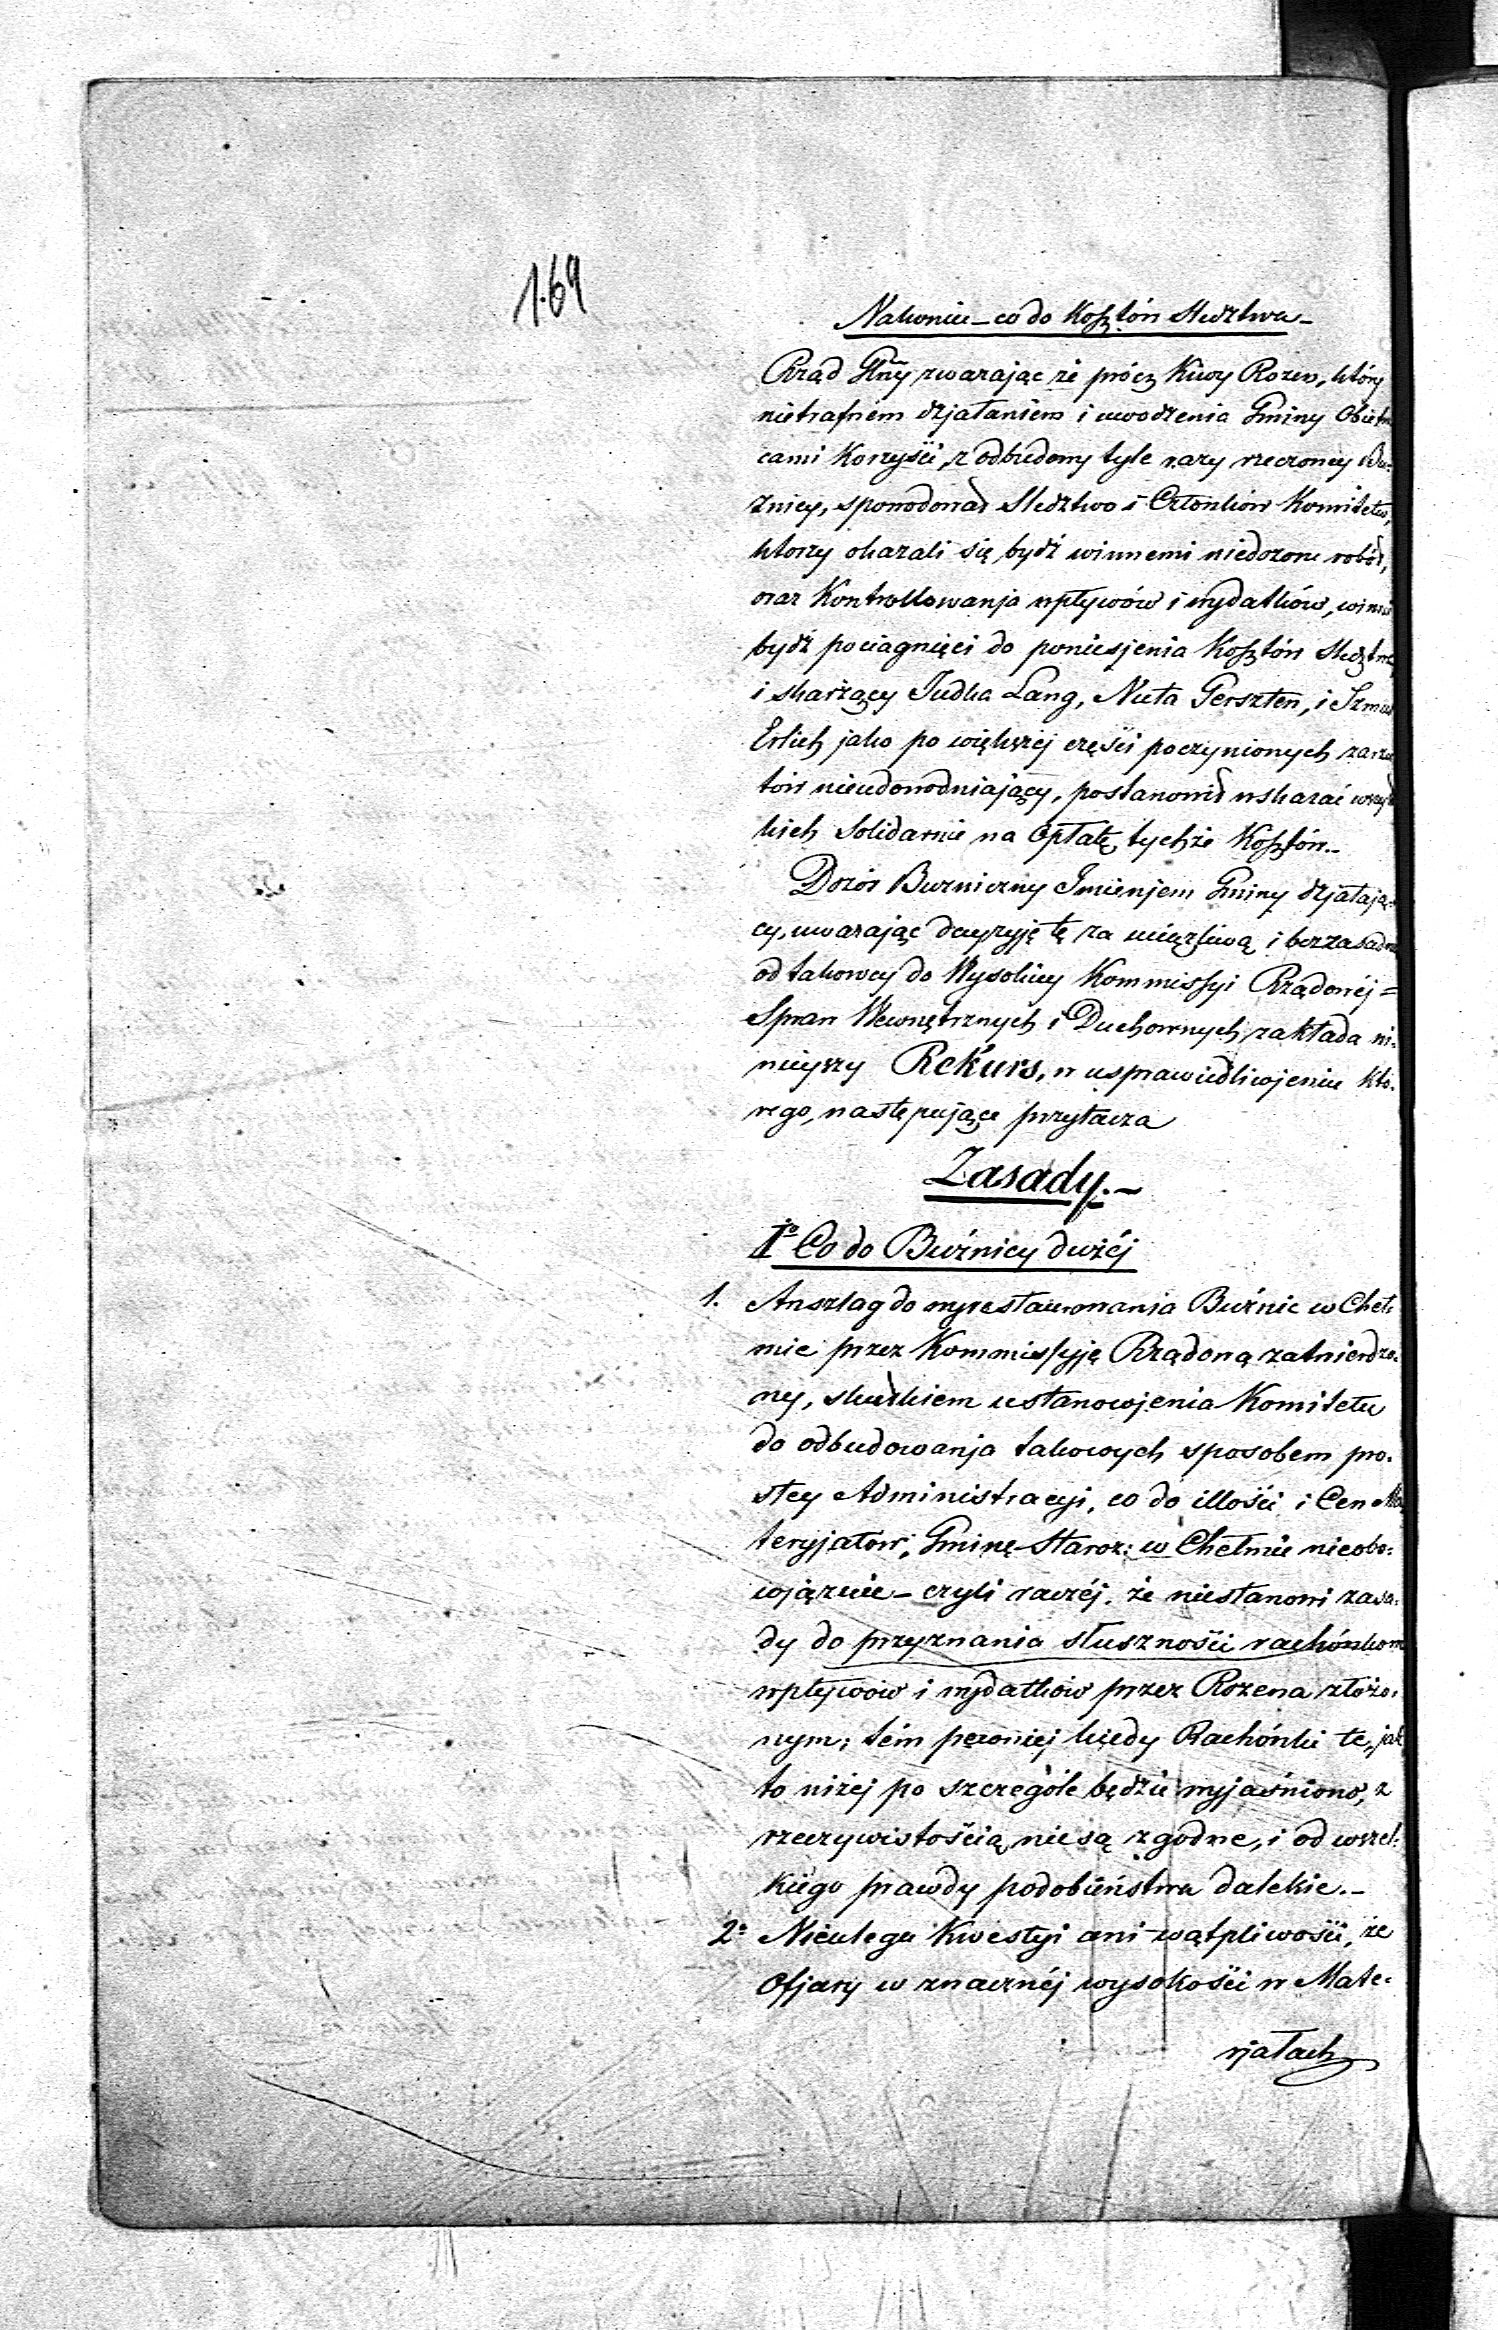 169
Nakoniec – co do Kosztów Sledztwa –
Rząd Głny zwarając że prócz Kiwy Rozen, który
nietrafnem dzjałaniem i uwodzenia Gminy Obietni
cami Korzyści, z odbudowy tyle razy rzeczoney Bu-
żnicy, spowodował Sledztwo i Członków Komitetu,
ktorzy okazali się bydź winnemi niedozoru robót,
oraz Kontrollowanja wpływów i wydatków, winni
bydź pociągnięci do poniesjenia Kosztów Sledztwa,
i skarżący Judka Lang, Nuta Gerszten, i Szmul
Erlich jako po większej części poczynionych zarzu
tów nieudowodniający, postanowił wskazać wszyst
kich Solidarnie na Opłatę tychże Kosztów. –
Dozór Buzniczny Imienjem Gminy dzjałają-
cy, uwarając decyzyję tę za uciążliwą i bezzasadną
od takowey do Wysokiey Kommissyi Rządowéj =
Spraw Wewnętrznych i Duchownych zakłada ni-
nieyszy Rekurs, w usprawiedliwjeniu któ-
rego, następujące przytacza
Zasady. –
I° Co do Bużnicy dużéj
1. Anszlag do wyrestaurowania Bużnic w Cheł-
mie przez Kommissyję Rządową zatwierdzo-
ny, skutkiem ustanowjenia Komitetu
do odbudowanja takowych sposobem pro-
stey Administracyi, co do illości i Cen Ma
teryjałów, Gminę Staroz: w Chełmie nieobo-
wjązuie – czyli raczéj, że niestanowi zasa-
dy do przyznania słuszności rachónkom
wpływow i wydatkow przez Rozena złożo-
nym; tém pęwniej kiędy Rachónki te, jak
to niżej po szczególe będzie wyjaśniono, z
rzeczywistością niesą zgodne, i od wszel-
kiego prawdy podobieństwa dalekie. –
2° Nieulega Kwestyi ani wątpliwości, że
Ofjary w znacznéj wysokości w Mate-
rjałach